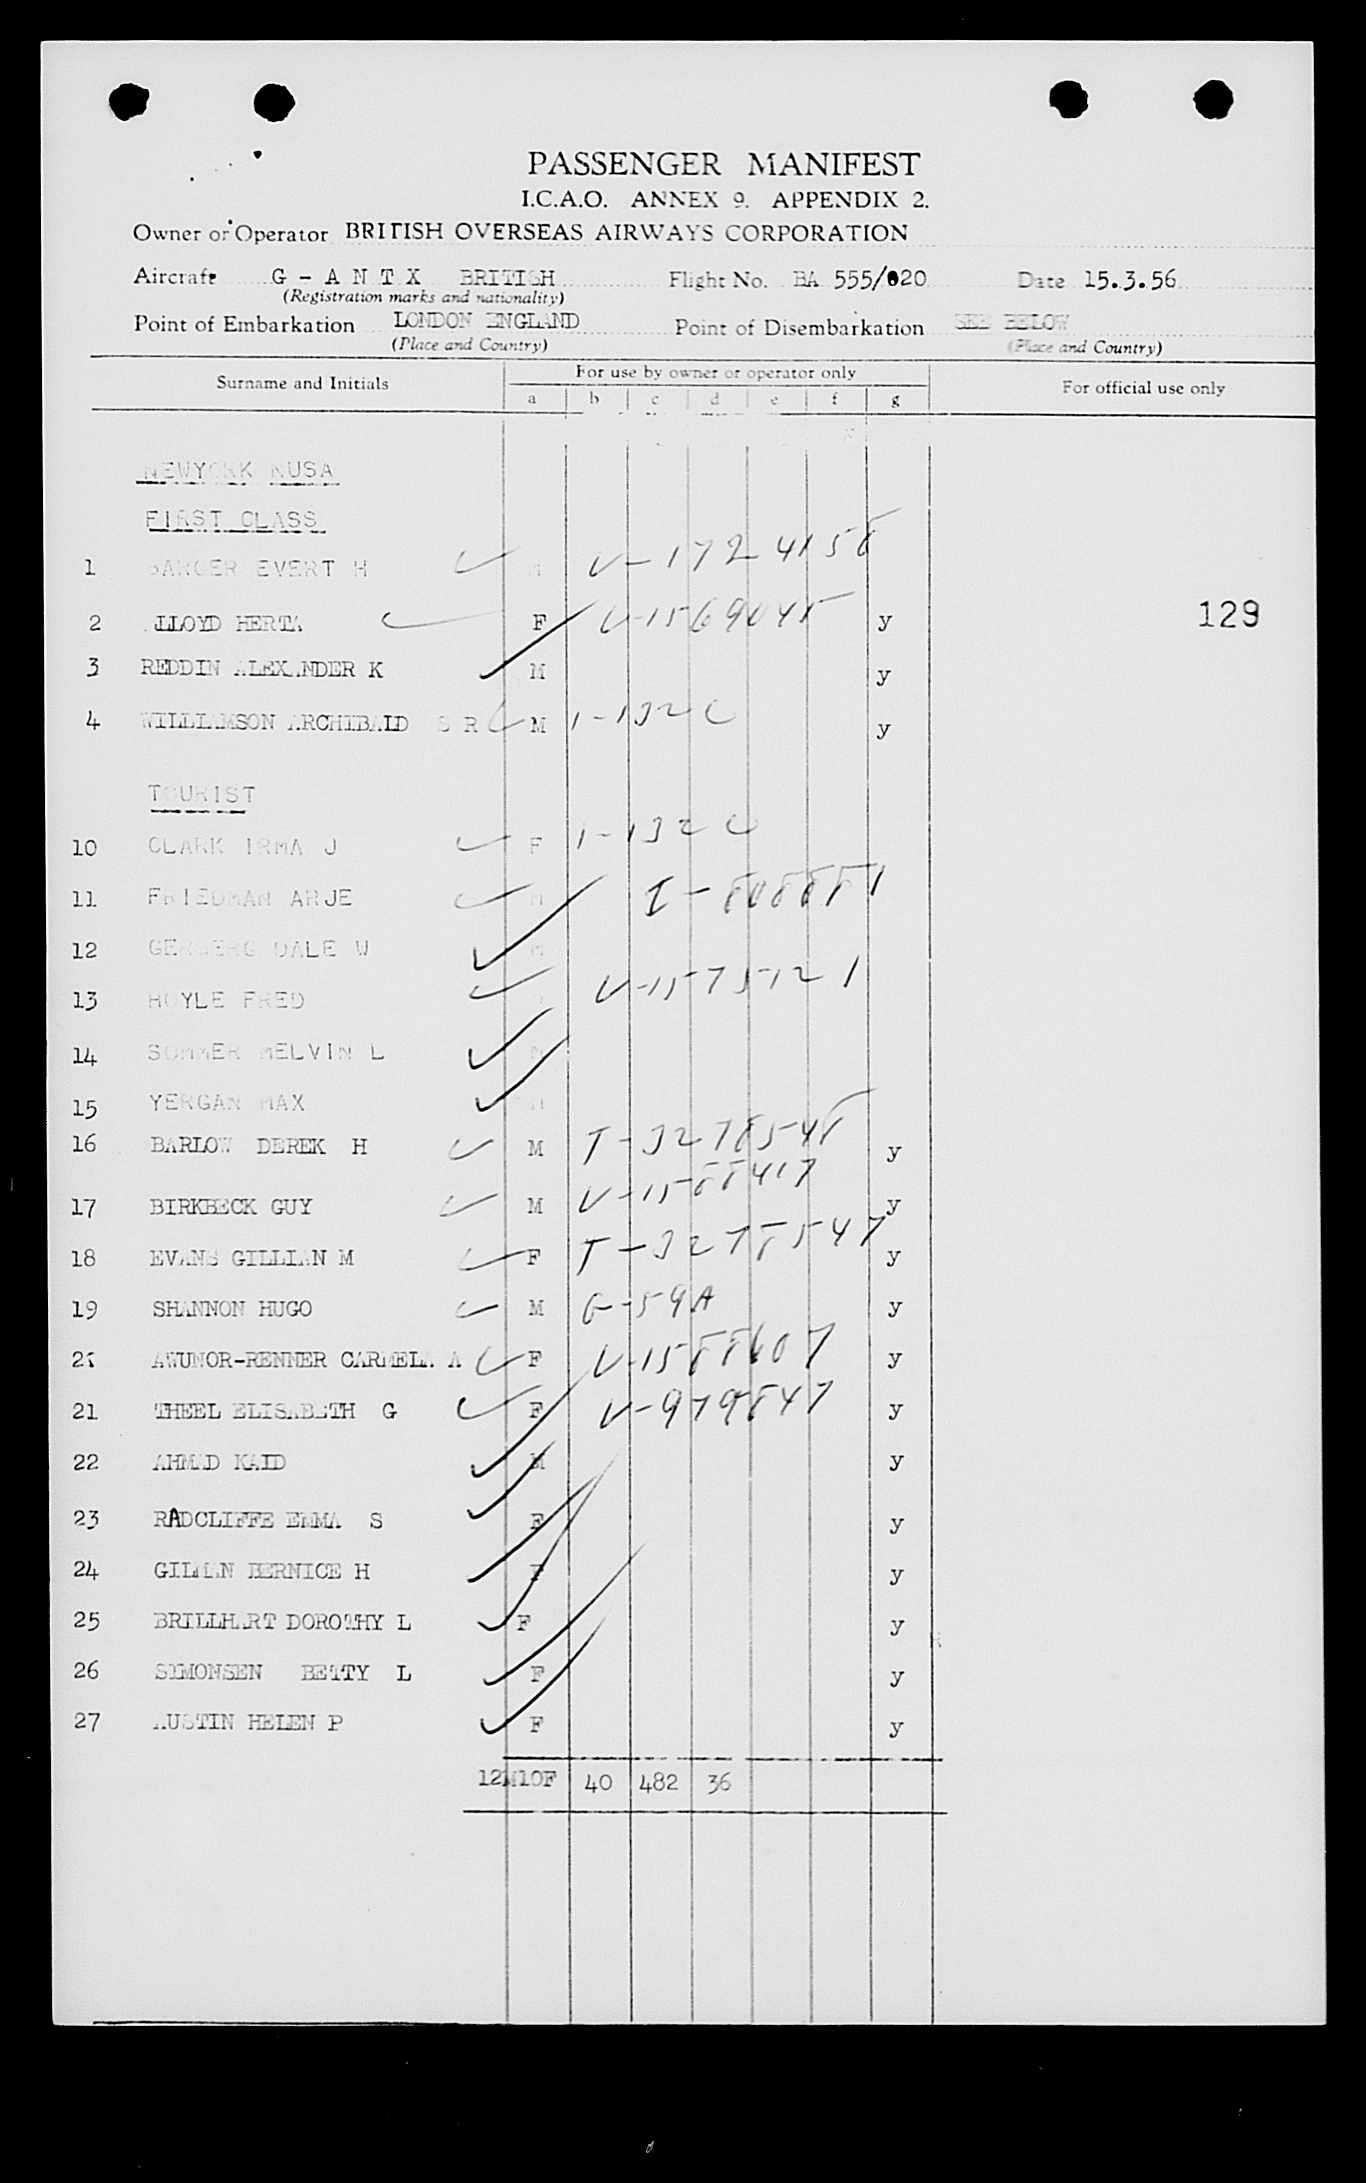 PASSENGER MANIFEST
I.C.A.O. ANNEX 9. APPENDIX 2.
Owner or Operator BRITISH OVERSEAS AIRWAYS CORPORATION
Aircraft G - A N T X BRITISH Flight No. BA 555/020 Date 15.3.56
(Registration marks and nationality)
Point of Embarkation LONDON ENGLAND Point of Disembarkation SEE BELOW
(Place and Country) (Place and Country)
Surname and Initials For use by owner or operator only For official use only
a b c d e f g
NEWYORK NUSA
FIRST CLASS
1 EVERT H M V-1724158
2 LLOYD HERTA F V-1569045 y 129
3 REDDIN ALEXANDER K M y
4 WILLIAMSON ARCHIBALD S R M 1-132 C y
TOURIST
10 CLARK IRMA J F 1-132 C
11 FRIEDMAN ARJE M I-808881
12 GERBERG DALE W M
13 HOYLE FRED V-1575121
14 SOMMER MELVIN L M
15 YERGAN MAX M
16 BARLOW DEREK H M T-3278548 y
17 BIRKBECK GUY M V-1588417 y
18 EVANS GILLIAN M F T-3278547 y
19 SHANNON HUGO M G-59A y
AWUNOR-RENNER CARMELA A F V-1588607 y
21 THEEL ELISABETH G F V-979847 y
22 AHMAD KAID M y
23 RADCLIFFE EMMA S F y
24 BERNICE H F y
25 BRILLHART DOROTHY L F y
26 SIMONSEN BETTY L F y
27 AUSTIN HELEN P F y
12M10F 40 482 36